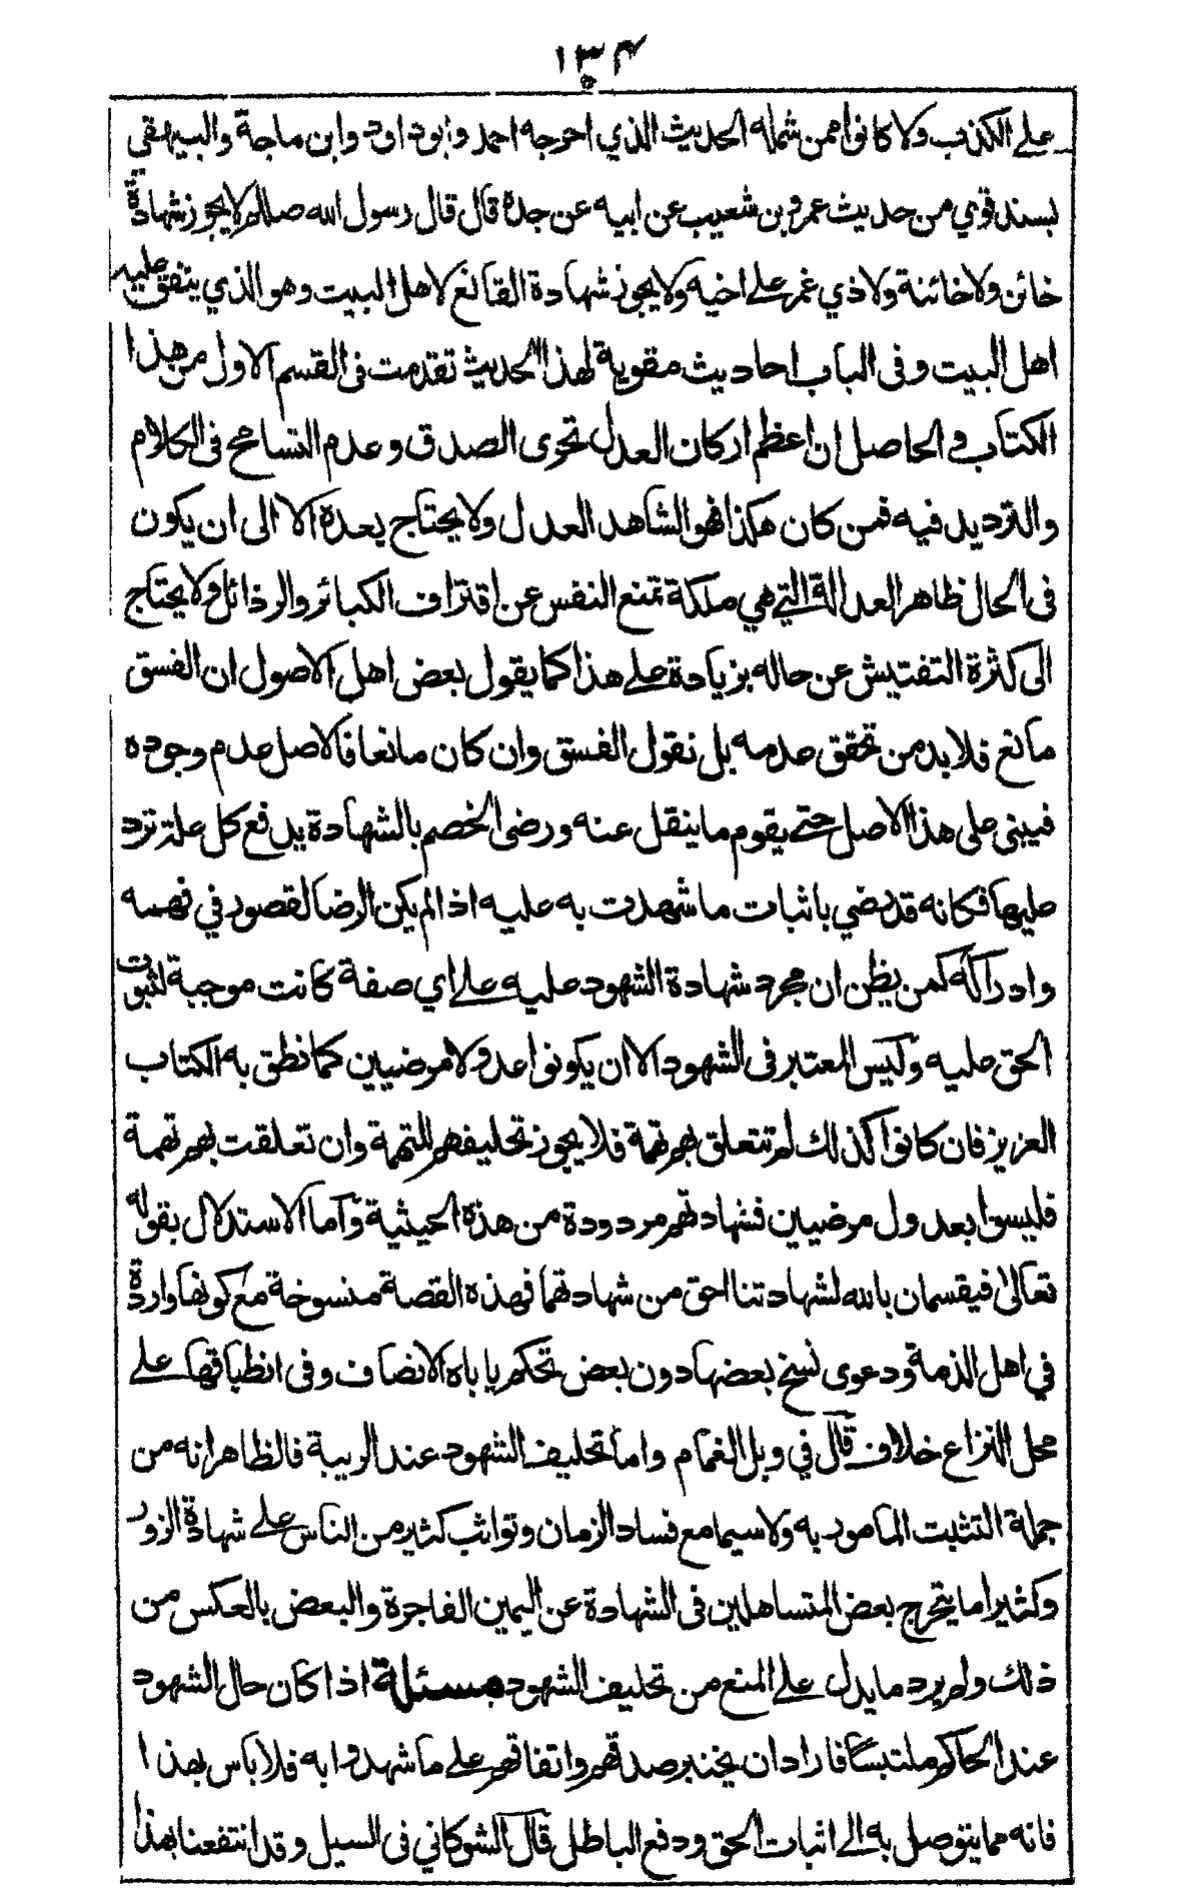 ١٣۴
على الكذب ولا كانوا ممن شمله الحديث الذي اخرجه احمد وابوداود وابن ماجة والبيهقى
بسند قوي من حديث عمرو بن شعيب عن ابيه عن جده قال قال رسول الله صللم لا يجوز شهادة
خائن ولا خائنة ولا ذي غمر على اخيه ولا يجوز شهادة القانع لاهل البيت وهو الذي ينفق عليه
اهل البيت وفى الباب احاديث مقوية لهذا الحديث تقدمت فى القسم الاول من هذا
الكتاب والحاصل ان اعظم اركان العدل تحرى الصدق وعدم التسامح فى الكلام
والتزديد فيه فمن كان هكذا فهو الشاهد العدل ولا يحتاج بعده الا الى ان يكون
فى الحال ظاهر العدالة التي هي ملكة تمنع النفس عن اقتراف الكبائر والرذائل ولا يحتاج
الى كثرة التفتيش عن حاله بزيادة على هذا كما يقول بعض اهل الاصول ان الفسق
مانع فلا بد من تحقق عدمه بل نقول الفسق وان كان مانعا فالاصل عدم وجوده
فيبنى على هذا الاصل حتى يقوم ما ينقل عنه ورضى الخصم بالشهادة يدفع كل علة ترد
عليها فكانه قد رضي باثبات ما شهدت به عليه اذا لم يكن الرضا لقصور في فهمه
وادراكه كمن يظن ان مجرد شهادة الشهود عليه على اي صفة كانت موجبة لثبوت
الحق عليه وليس المعتبر فى الشهود الا ان يكونوا عدولا مرضيين كما نطق به الكتاب
العزيز فان كانوا كذلك لم تتعلق بهم تهمة فلا يجوز تحليفهم للتهمة وان تعلقت بهم تهمة
فليسوا بعدول مرضيين فشهادتهم مردودة من هذه الحيثية وآما الاستدلال بقوله
تعالى فيقسمان بالله لشهادتنا احق من شهادتهما فهذه القصة منسوخة مع كونها واردة
في اهل الذمة ودعوى نسخ بعضها دون بعض تحكم ياباه الانصاف وفى انطباقها على
محل النزاع خلاف قال في وبل الغمام واما تحليف الشهود عند الريبة فالظاهر انه من
جملة التثبت المامور به ولا سيما مع فساد الزمان وتواثب كثير من الناس على شهادة الزور
وكثيرا ما يتحرج بعض المتساهلين فى الشهادة عن اليمين الفاجرة والبعض بالعكس من
ذلك ولم يرد ما يدل على المنع من تحليف الشهود مسئلة اذا كان حال الشهود
عند الحاكم ملتبسا فاراد ان يختبر صدقهم واتفاقهم على ما شهدوا به فلا باس بهذا
فانه مما يتوصل به الى اثبات الحق ودفع الباطل قال الشوكاني فى السيل وقد انتفعنا بهذا